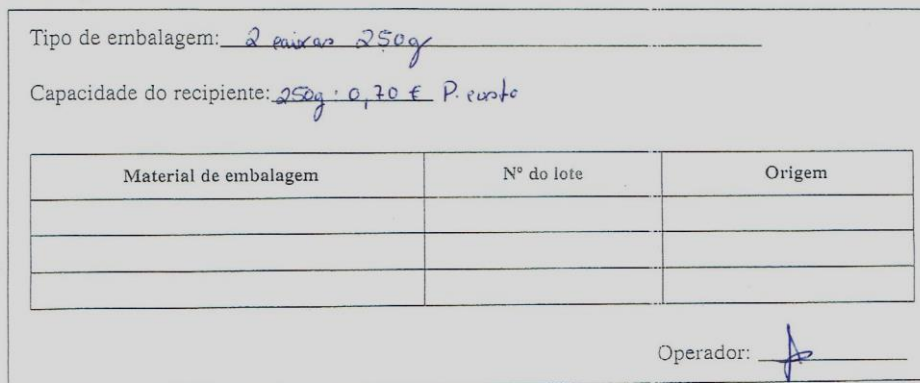 Tipo de embalagem: 2 caixas 250g
Capacidade do recipiente: 250g : 0,70 € P. custo
Material de embalagem Nº do lote Origem
Operador: